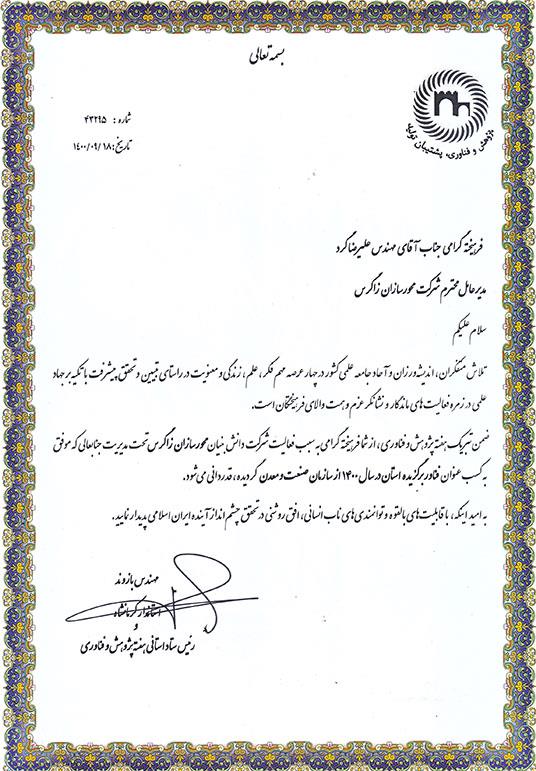 بسمه تعالی
پژوهش و فناوری، پشتیبان تولید
شماره : ۴۳۲۹۵
تاریخ: ۱۴۰۰/۰۹/۱۸
فرهیخته گرامی جناب آقای مهندس علیرضا گرد
مدیرعامل محترم شرکت محورسازان زاگرس
سلام علیکم
تلاش متفکران، اندیشه‌ورزان و آحاد جامعه علمی کشور در چهار عرصه مهم فکر، علم، زندگی و معنویت در راستای تبیین و تحقق پیشرفت با تکیه بر جهاد
علمی در زمره فعالیت‌های ماندگار و نشانگر عزم و همت والای فرهیختگان است.
ضمن تبریک هفته پژوهش و فناوری، از شما فرهیخته گرامی به سبب فعالیت شرکت دانش بنیان محورسازان زاگرس تحت مدیریت جنابعالی که موفق
به کسب عنوان فناور برگزیده استان در سال ۱۴۰۰ از سازمان صنعت و معدن گردیده، قدردانی می‌شود.
به امید اینکه، با قابلیت‌های بالقوه و توانمندی‌های ناب انسانی، افق روشنی در تحقق چشم انداز آینده ایران اسلامی پدیدار نمایید.
مهندس بازوند
استاندار کرمانشاه
و
رئیس ستاد استانی هفته پژوهش و فناوری